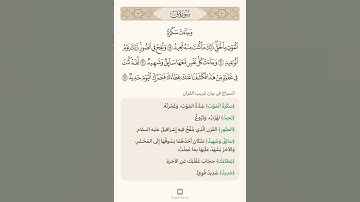 سُورَةُ ق
وَجَآءَتْ سَكْرَةُ
ٱلْمَوْتِ بِٱلْحَقِّ ذَٰلِكَ مَا كُنتَ مِنْهُ تَحِيدُ ١٩ وَنُفِخَ فِي ٱلصُّورِ ذَٰلِكَ يَوْمُ
ٱلْوَعِيدِ ٢٠ وَجَآءَتْ كُلُّ نَفْسٍ مَّعَهَا سَآئِقٌ وَشَهِيدٌ ٢١ لَّقَدْ كُنتَ
فِي غَفْلَةٍ مِّنْ هَٰذَا فَكَشَفْنَا عَنكَ غِطَآءَكَ فَبَصَرُكَ ٱلْيَوْمَ حَدِيدٌ ٢٢
السراج في بيان غريب القرآن
﴿سَكْرَةُ الْمَوْتِ﴾ شِدَّةُ الْمَوْتِ، وَغَمْرَتُهُ.
﴿تَحِيدُ﴾ تَهْرُبُ، وَتَرُوغُ.
﴿الصُّورِ﴾ القَرْنِ الَّذِي يَنْفُخُ فِيهِ إِسْرَافِيلُ عليه السلام.
﴿سَائِقٌ وَشَهِيدٌ﴾ مَلَكَانِ أَحَدُهُمَا يَسُوقُهَا إِلَى المَحْشَرِ،
وَالآخَرُ يَشْهَدُ عَلَيْهَا بِمَا عَمِلَتْ.
﴿غِطَاءَكَ﴾ حِجَابَ غَفْلَتِكَ عَنِ الآخِرَةِ.
﴿حَدِيدٌ﴾ شَدِيدٌ قَوِيٌّ.